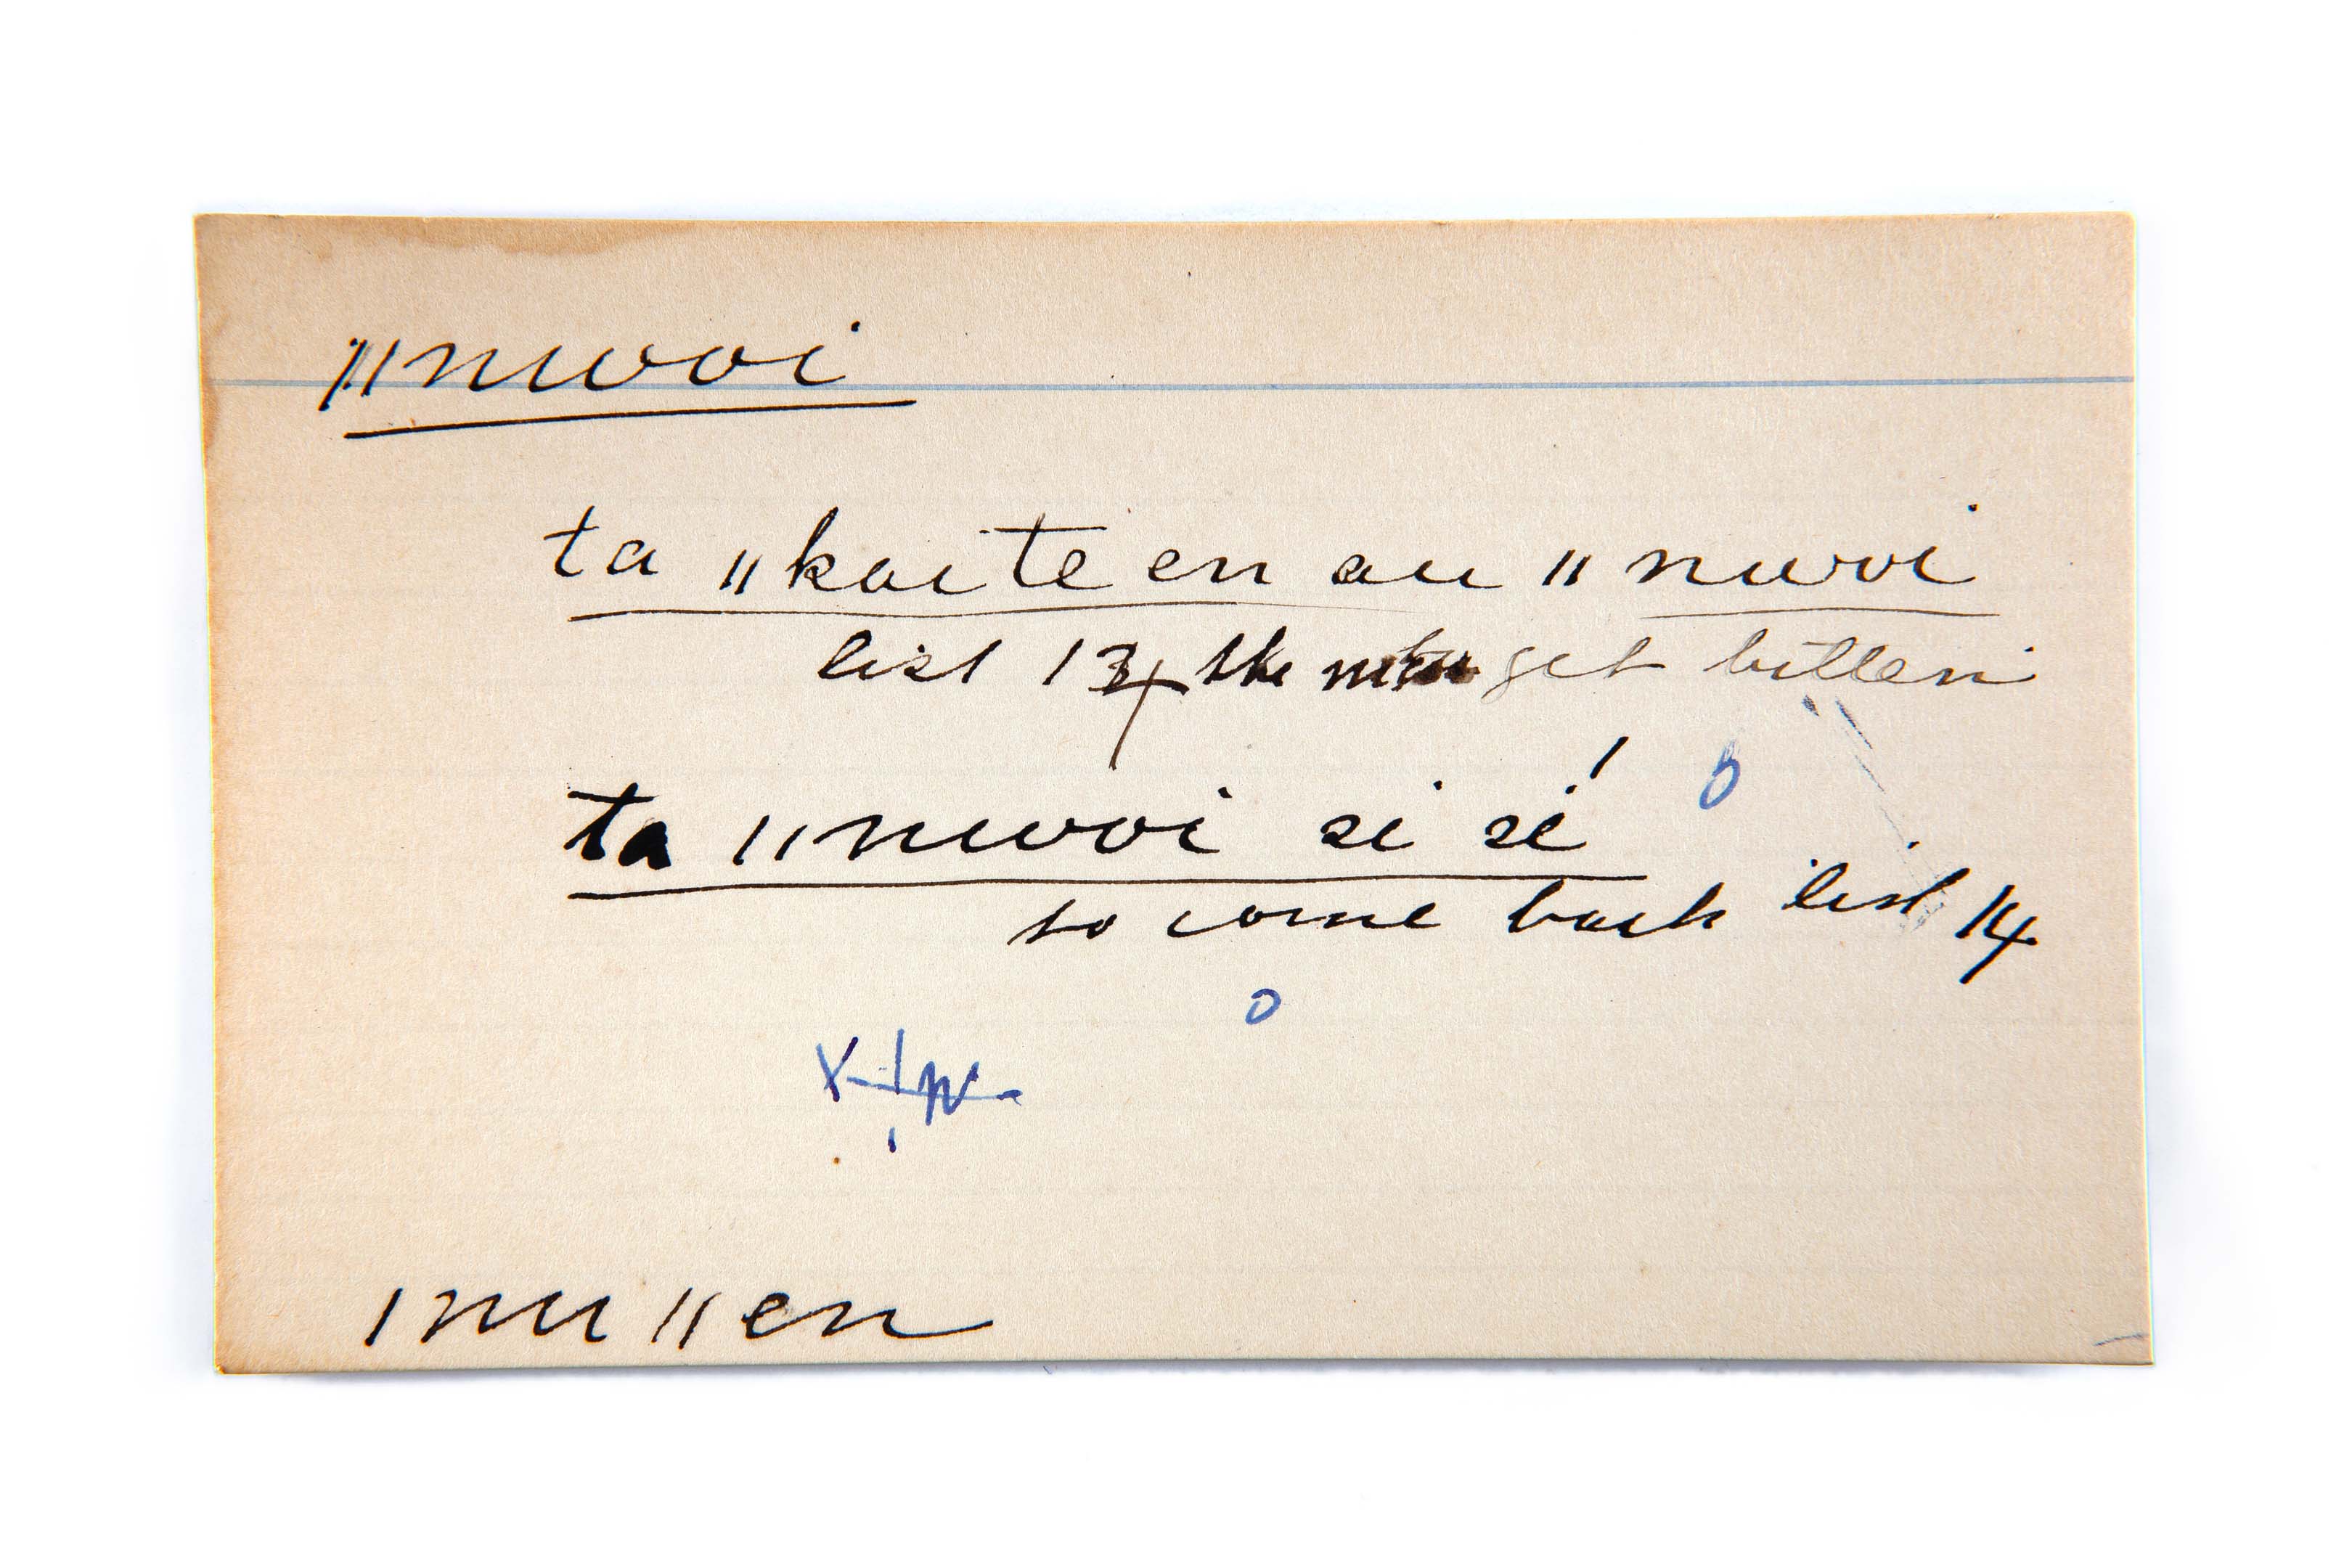 ǁnwoi
ta ǁkaiteen au ǁnwoi
list 14 the get bitten
ta ǁnwoi si sé
to come back list 14
ǀnuǁen